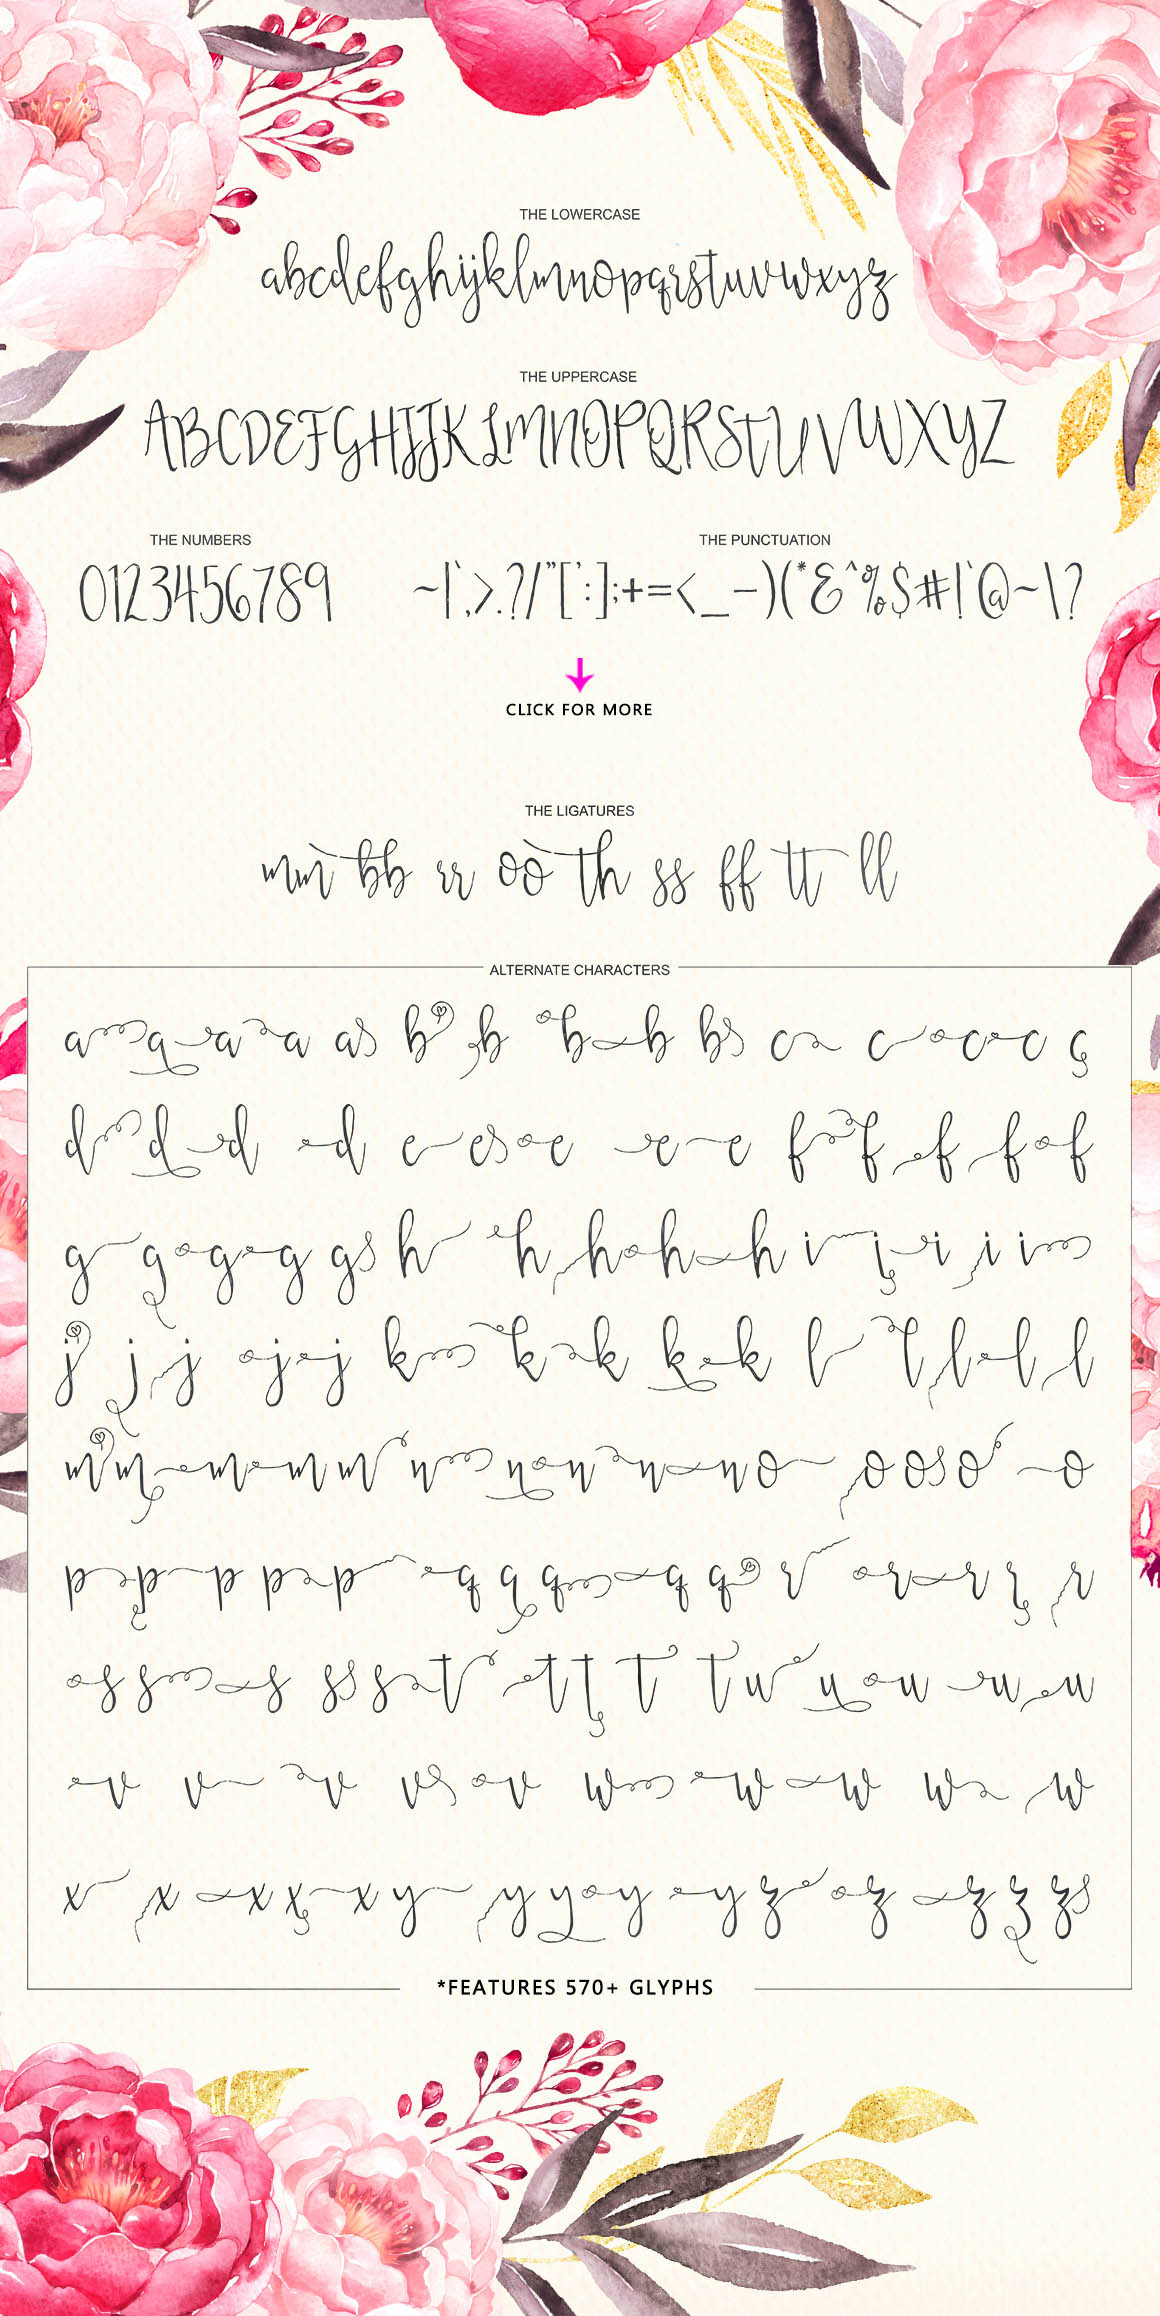 THE LOWERCASE
abcdefghijklmnopqrstuvwxyz
THE UPPERCASE
ABCDEFGHIJKLMNOPQRSTUVWXYZ
THE NUMBERS
0123456789
THE PUNCTUATION
~|`,>.?/"[':];+=<_-)(*&^%$#!`@~\?
CLICK FOR MORE
THE LIGATURES
mm bb rr oo th ss ff tt ll
ALTERNATE CHARACTERS
a a a a as b b b b bs c c c c c
d d d d e es e e e f f f f f
g g g g gs h h h h h i i i i i
j j j j j k k k k k l l l l l
m m m m m n n n n n o o os o o
p p p p p q q q q q r r r r r
s s s ss s t t t t t u u u u u
v v v vs v w w w w w
x x x x x y y y y y z z z z zs
*FEATURES 570+ GLYPHS